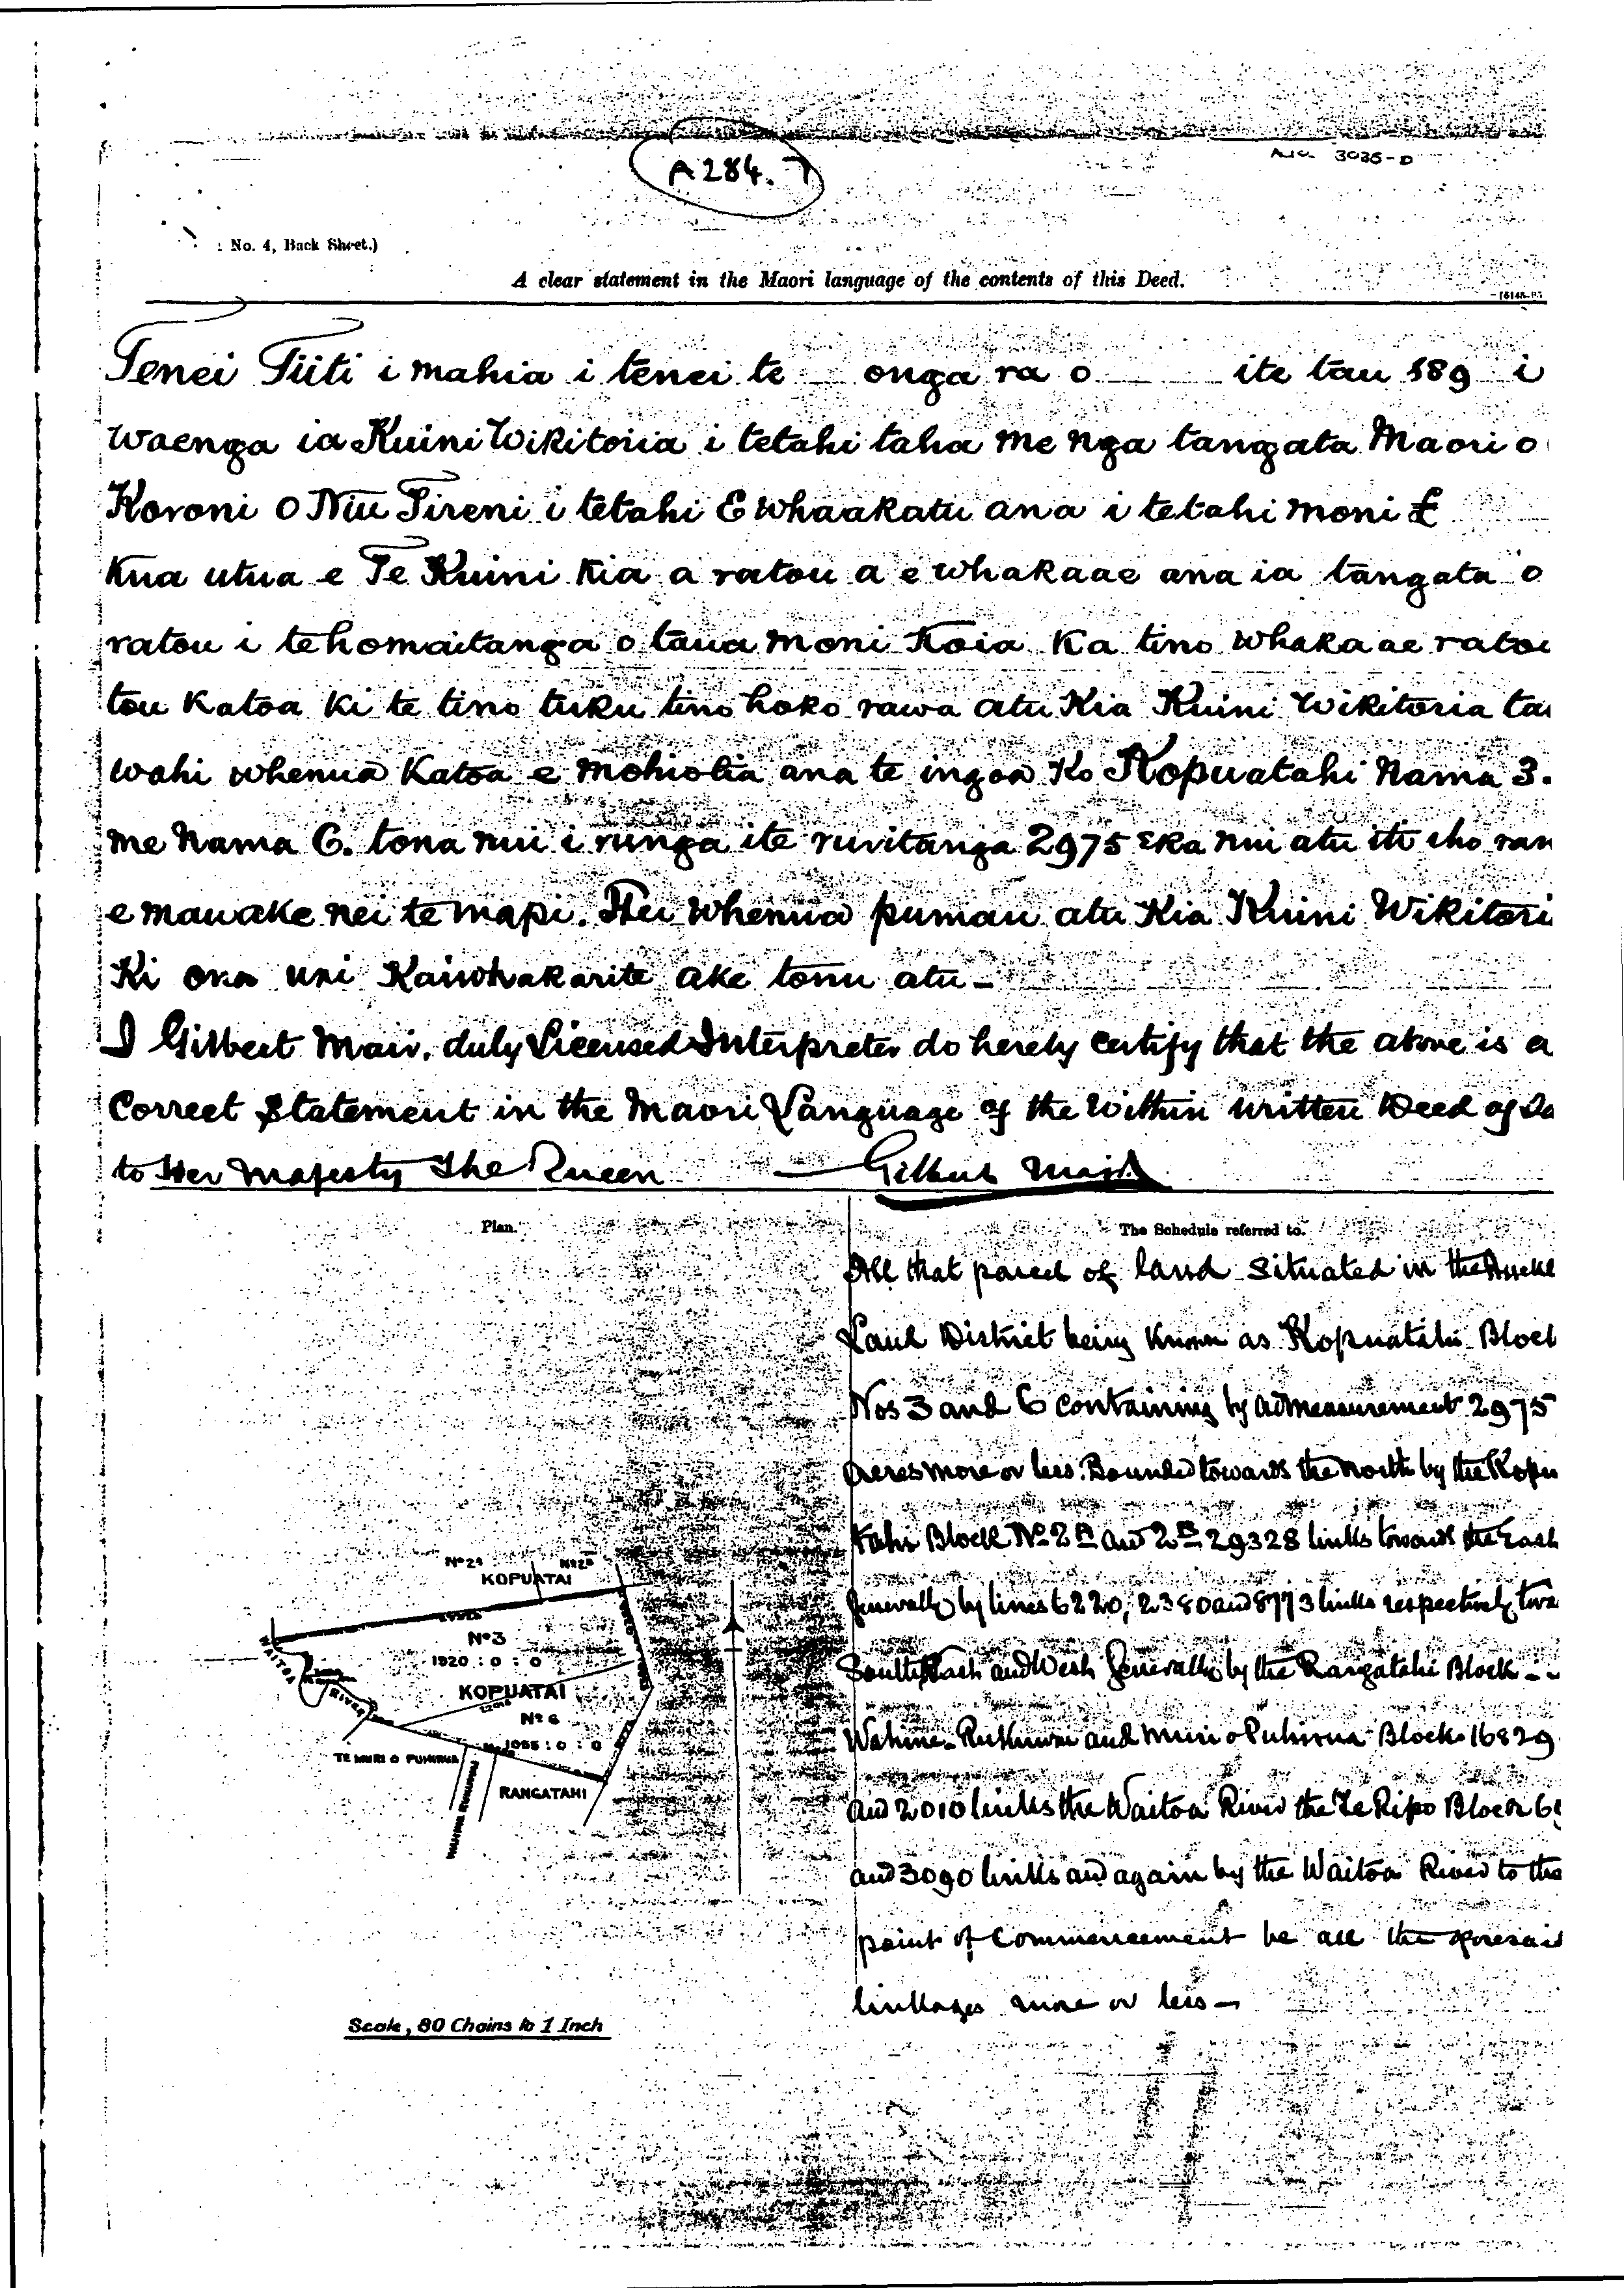 A 284.
3035-D
No. 4, Back Sheet.)
A clear statement in the Maori language of the contents of this Deed.
Tenei Tiiti i mahia i tenei te onga ra o ite tau 189 i
Waenga ia Kuini Wikitoria i tetahi taha me nga tangata Maori o
Koroni o Niu Tireni i tetahi E whaakatu ana i tetahi moni £
Kua utua e Te Kuini Kia a ratou a e whakaae ana ia tangata o
ratou i te homaitanga o taua moni Koia Ka tino whakaae ratou
tou Katoa Ki te tino tuku tino hoko rawa atu Kia Kuini Wikitoria
wahi whenua Katoa e mohiotia ana te ingoa Ko Kopuatahi Nama 3.
me Nama 6. tona nui i runga ite ruritanga 2975 eka nui atu iti iho
e mau ake nei te mapi. Hei whenua pumau atu Kia Kuini Wikitori
Ki ona uri Kaiwhakarite ake tonu atu —
I Gilbert Mair, duly Licensed Interpreter do hereby certify that the above is a
Correct Statement in the Maori Language of the within written Deed of
to Her Majesty the Queen — Gilbert Mair
Plan.
The Schedule referred to.
All that parcel of land situated in the Auckl
Land District being known as Kopuatahi Block
Nos 3 and 6 containing by admeasurement 2975
acres more or less. Bounded towards the north by the Kopu
tahi Block No 2A and 2B 29328 links towards the East
generally by lines 6220, 2380 and 8773 links respectively
South East and West generally by the Rangatahi Block
Wahine Rukuwai and Muri o Puhirua Block 16829
and 2010 links the Waitoa River the Te Ripo Block
and 3090 links and again by the Waitoa River to the
point of Commencement be all the aforesaid
linkages more or less —
No 2A
No 2B
KOPUATAI
No 3
1920 : 0 : 0
WAITOA
RIVER
KOPUATAI
No 6
1055 : 0 : 0
TE MURI O PUHIRUA
RANGATAHI
Scale, 80 Chains to 1 Inch